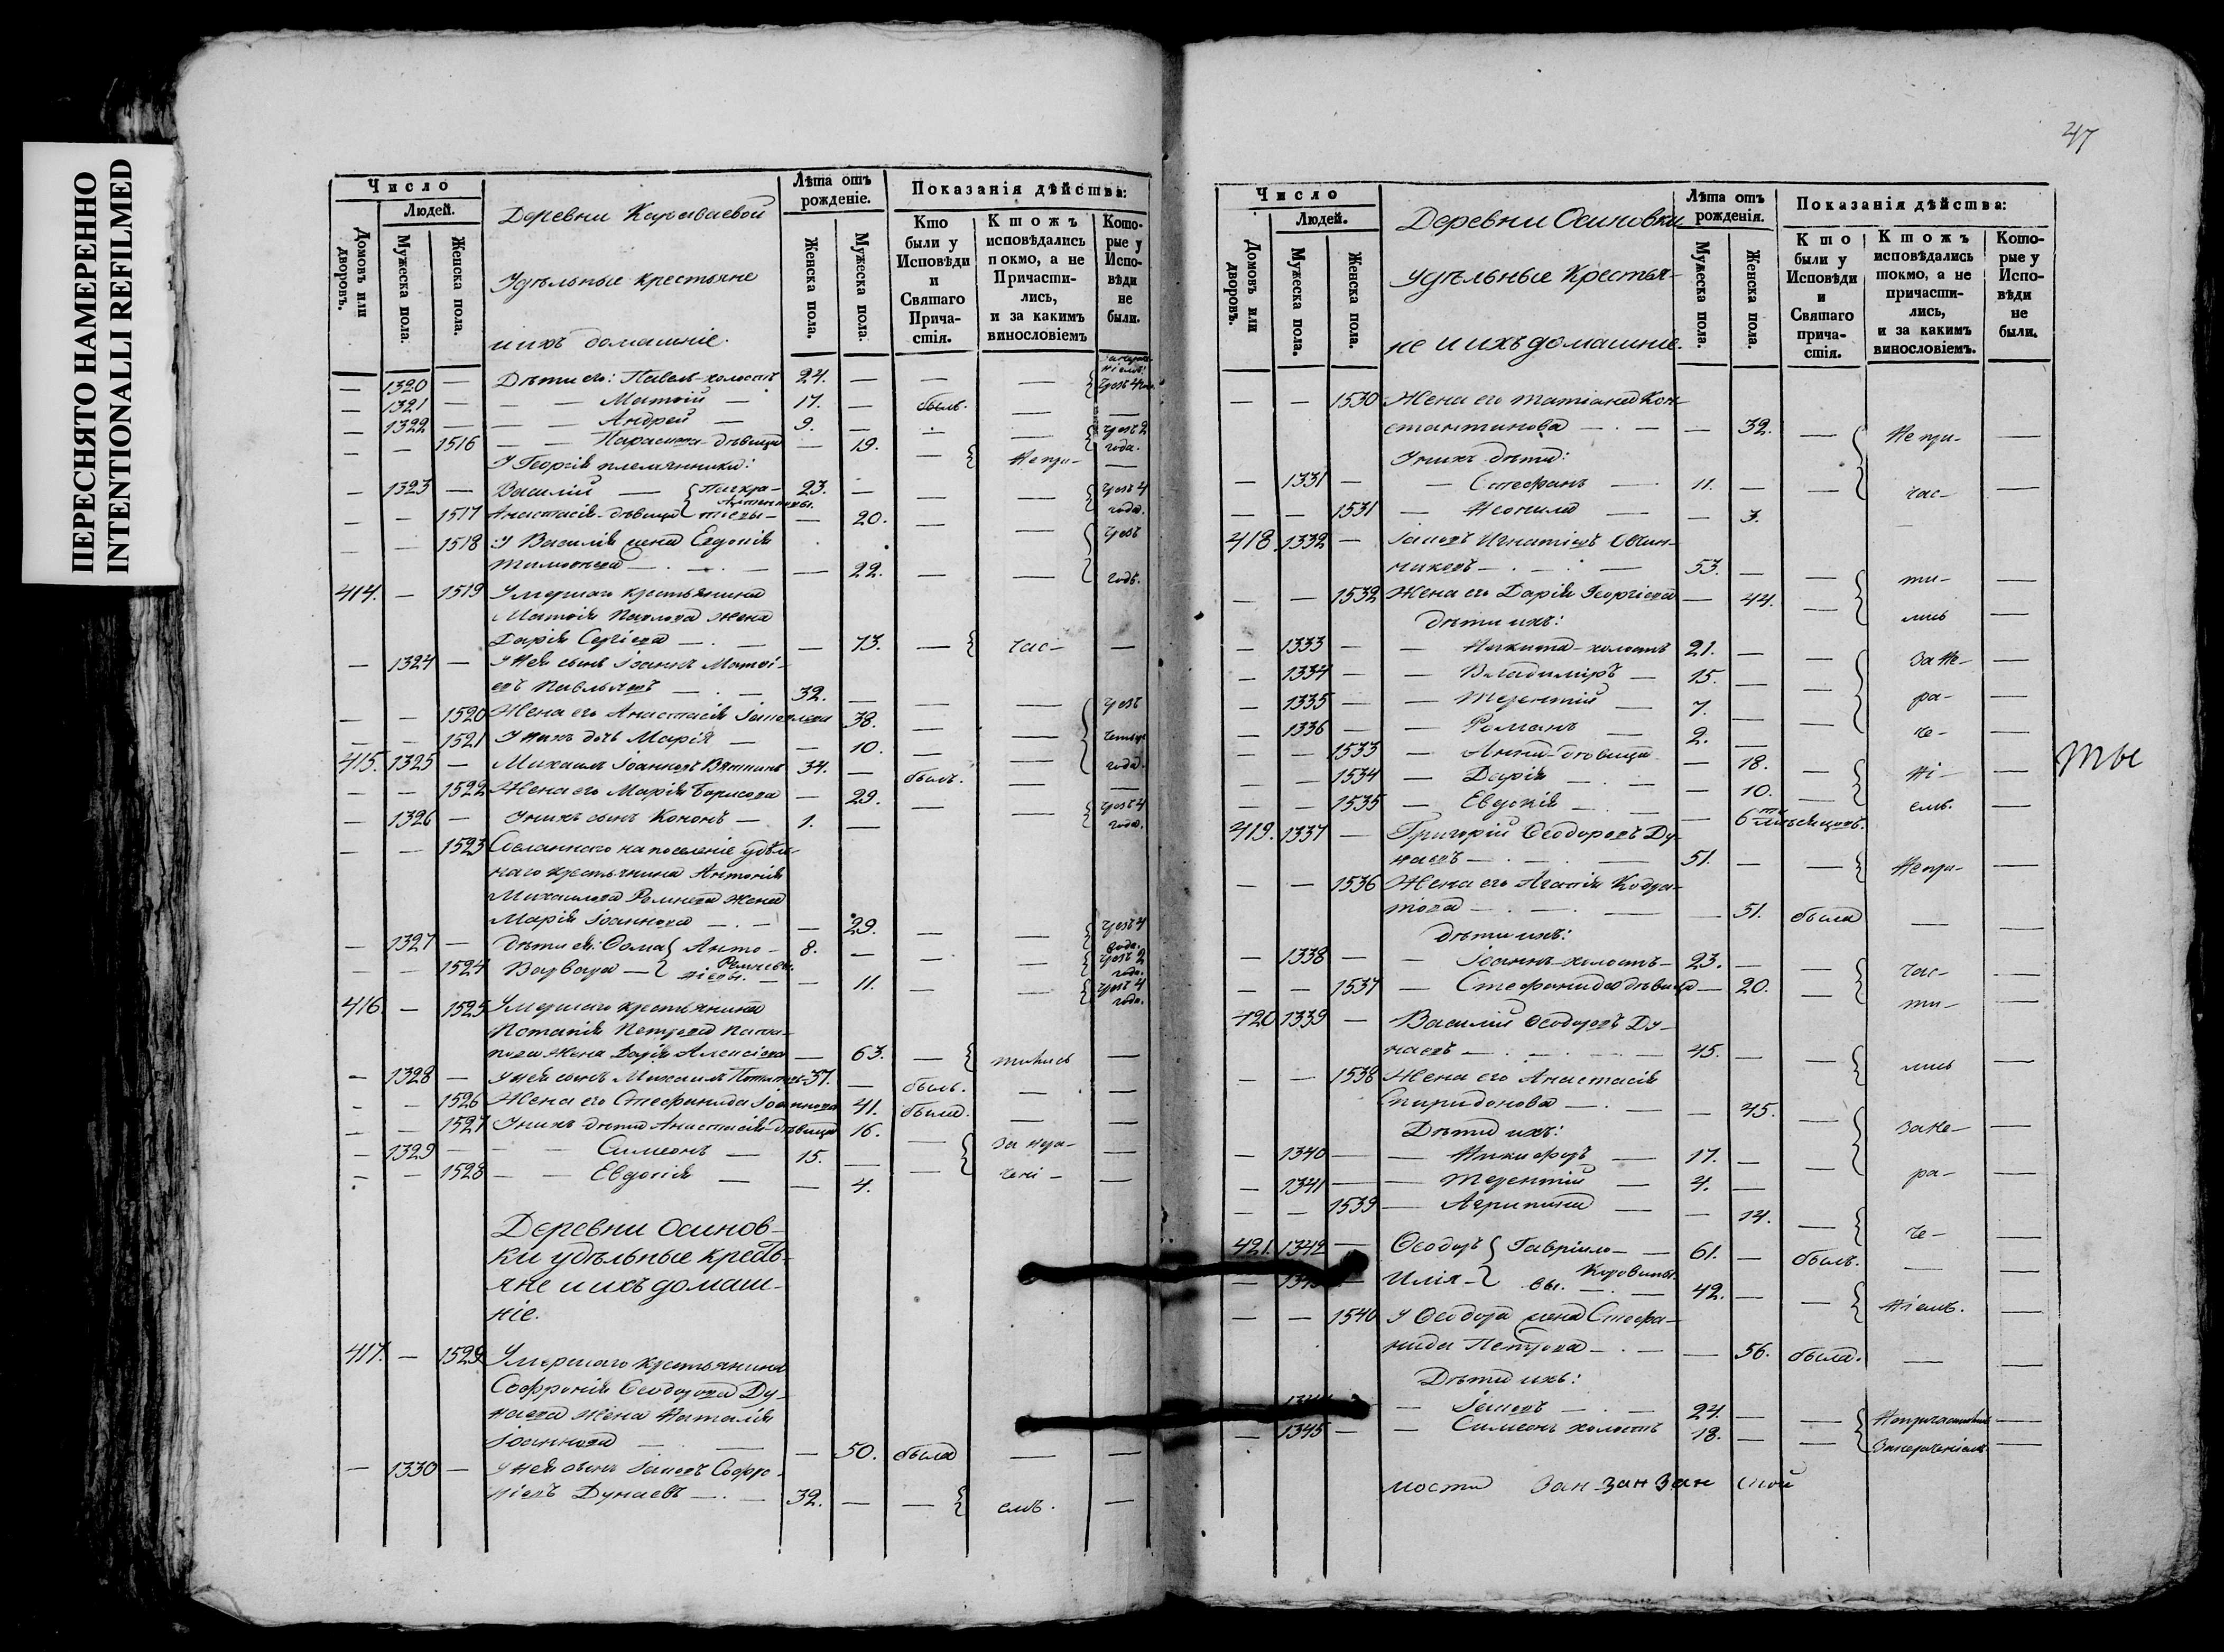 ПЕРЕСНЯТО НАМЕРЕННО
INTENTIONALLI REFILMED
Число
Людей.
Домовъ или дворовъ.
Мужеска пола.
Женска пола.
Деревни Караваевой
Удѣльные крестьяне
и ихъ домашніе.
Лѣта отъ рожденіе.
Женска пола.
Мужеска пола.
Показанія дѣйства:
Кто были у Исповѣди и Святаго Причастія.
Ктожъ исповѣдались токмо, а не Причастились, и за какимъ винословіемъ
Которые у Исповѣди не были.
— 1320 — Дѣти его: Павелъ-холостъ 24. — — —
— 1321 — — — Матѳій — 17. — былъ. — —
— 1322 — — — Андрей — 9. — — — чрезъ 2
— — 1516 — — Параскева-дѣвица — 19. — года.
У Георгія племянники: Непри- —
— 1323 — Василій — 23. — — — чрезъ 4
— — 1517 Анастасія-дѣвица — 20. — — года.
— — 1518 У Василія жена Евдокія чрезъ
Тимоѳеева — . — . — — 22. — — годъ.
414. — 1519 Умершаго крестьянина
Матѳія Павлова жена
Дарія Сергіева — . — — 73. — час- —
— 1324 — У Нея сынъ Іоаннъ Матѳі-
евъ Павловъ — . — 32. — — —
— — 1520 Жена его Анастасія 38. — — чрезъ
— — 1521 У нихъ дочь Марія — — 10. — — четыре
415. 1325 — Михаилъ Іоанновъ 34. — былъ. — года.
— — 1522 Жена его Марія Борисова — 29. — — —
— 1326 — У нихъ сынъ Кононъ — 1. — — чрезъ 4 года.
— — 1523 Сосланнаго на поселеніе удѣль-
наго крестьянина Антонія
Михаилова жена
Марія Іоаннова — . — — 29. — — чрезъ 4 года.
— 1327 — Дѣти ея: Ѳома { Анто- 8. — — — чрезъ 2 года.
— — 1524 Варвара — } ніевы. — 11. — — чрезъ 4 года.
416. — 1525 Умершаго крестьянина
Потапія Петрова
жена Дарія Алексіева — 63. — тились —
— 1328 — У нея сынъ Михаилъ 37. — былъ. — —
— — 1526 Жена его Стефанида Іоаннова 41. была. — —
— — 1527 У нихъ дѣти Анастасія-дѣвица 16. —
— 1329 — — — Симеонъ — 15. — — за нера- —
— — 1528 — — Евдокія — — 4. — чені- —
Деревни Осинов-
ки удѣльные кресть-
яне и ихъ домаш-
ніе.
417. — 1529 Умершаго крестьянина
Софронія Ѳеодорова Ду-
наева жена Наталія
Іоаннова — — — 50. была — —
— 1330 — У нея сынъ Іаковъ Софро-
ніевъ Дунаевъ — . — 32. — — емъ. —
47
Число
Людей.
Домовъ или дворовъ.
Мужеска пола.
Женска пола.
Деревни Осиновки
удѣльные Крестья-
не и ихъ домашніе.
Лѣта отъ рожденія.
Мужеска пола.
Женска пола.
Показанія дѣйства:
Кто были у Исповѣди и Святаго причастія.
Ктожъ исповѣдались токмо, а не причастились, и за какимъ винословіемъ.
Которые у Исповѣди не были.
— — 1530 Жена его Татіана Кон-
стантинова — . — — 32. — Непри- —
У нихъ дѣти:
— 1331 — — Стефанъ — 11. — — час- —
— — 1531 — Неонила — — 3. —
418. 1332 — Іаковъ Игнатіевъ Овчин-
никовъ — . — . — 53. — — ти- —
— — 1532 Жена его Дарія Георгіева — 44. — лись —
Дѣти ихъ:
— 1333 — — Никита-холостъ 21. — — за не- —
— 1334 — — Владиміръ — 15. —
— 1335 — — Терентій — 7. — — ра- —
— 1336 — — Романъ — 2. — — че- —
— — 1533 — Анна-дѣвица — 18.
— — 1534 — Дарія — . — — 10. — ні- —
— — 1535 — Евдокія — . — 6ти мѣсяцовъ. емъ. —
ты
419. 1337 — Григорій Ѳеодоровъ Ду-
наевъ — . — . — 51. — — Непри- —
— — 1536 Жена его Агапія Кодра-
това — . — . — — 51. была — —
Дѣти ихъ:
— 1338 — — Іоаннъ-холостъ — 23. — — час- —
— — 1537 — Стефанида дѣвица — 20. — ти- —
420. 1339 — Василій Ѳеодоровъ Ду-
наевъ — . — . — . — 45. — — лись —
— — 1538 Жена его Анастасія
Спиридонова — . — — 45. — за не- —
Дѣти ихъ:
— 1340 — — Никифоръ — 17. — —
— 1341 — — Терентій — 4. — ра- —
— — 1539 — Агрипина — — 14. — че- —
421. 1342 — Ѳеодоръ { Гавріило- — 61. — былъ. —
— Илія — } вы. Коровины. 42. — — ніемъ. —
— — 1540 У Ѳеодора жена Стефа-
нида Петрова — . — — 56. была. — —
Дѣти ихъ:
— Іаковъ — . — 24. — — —
— 1345 — — Симеонъ холостъ 18. — — —
мости Зан Зан Зан